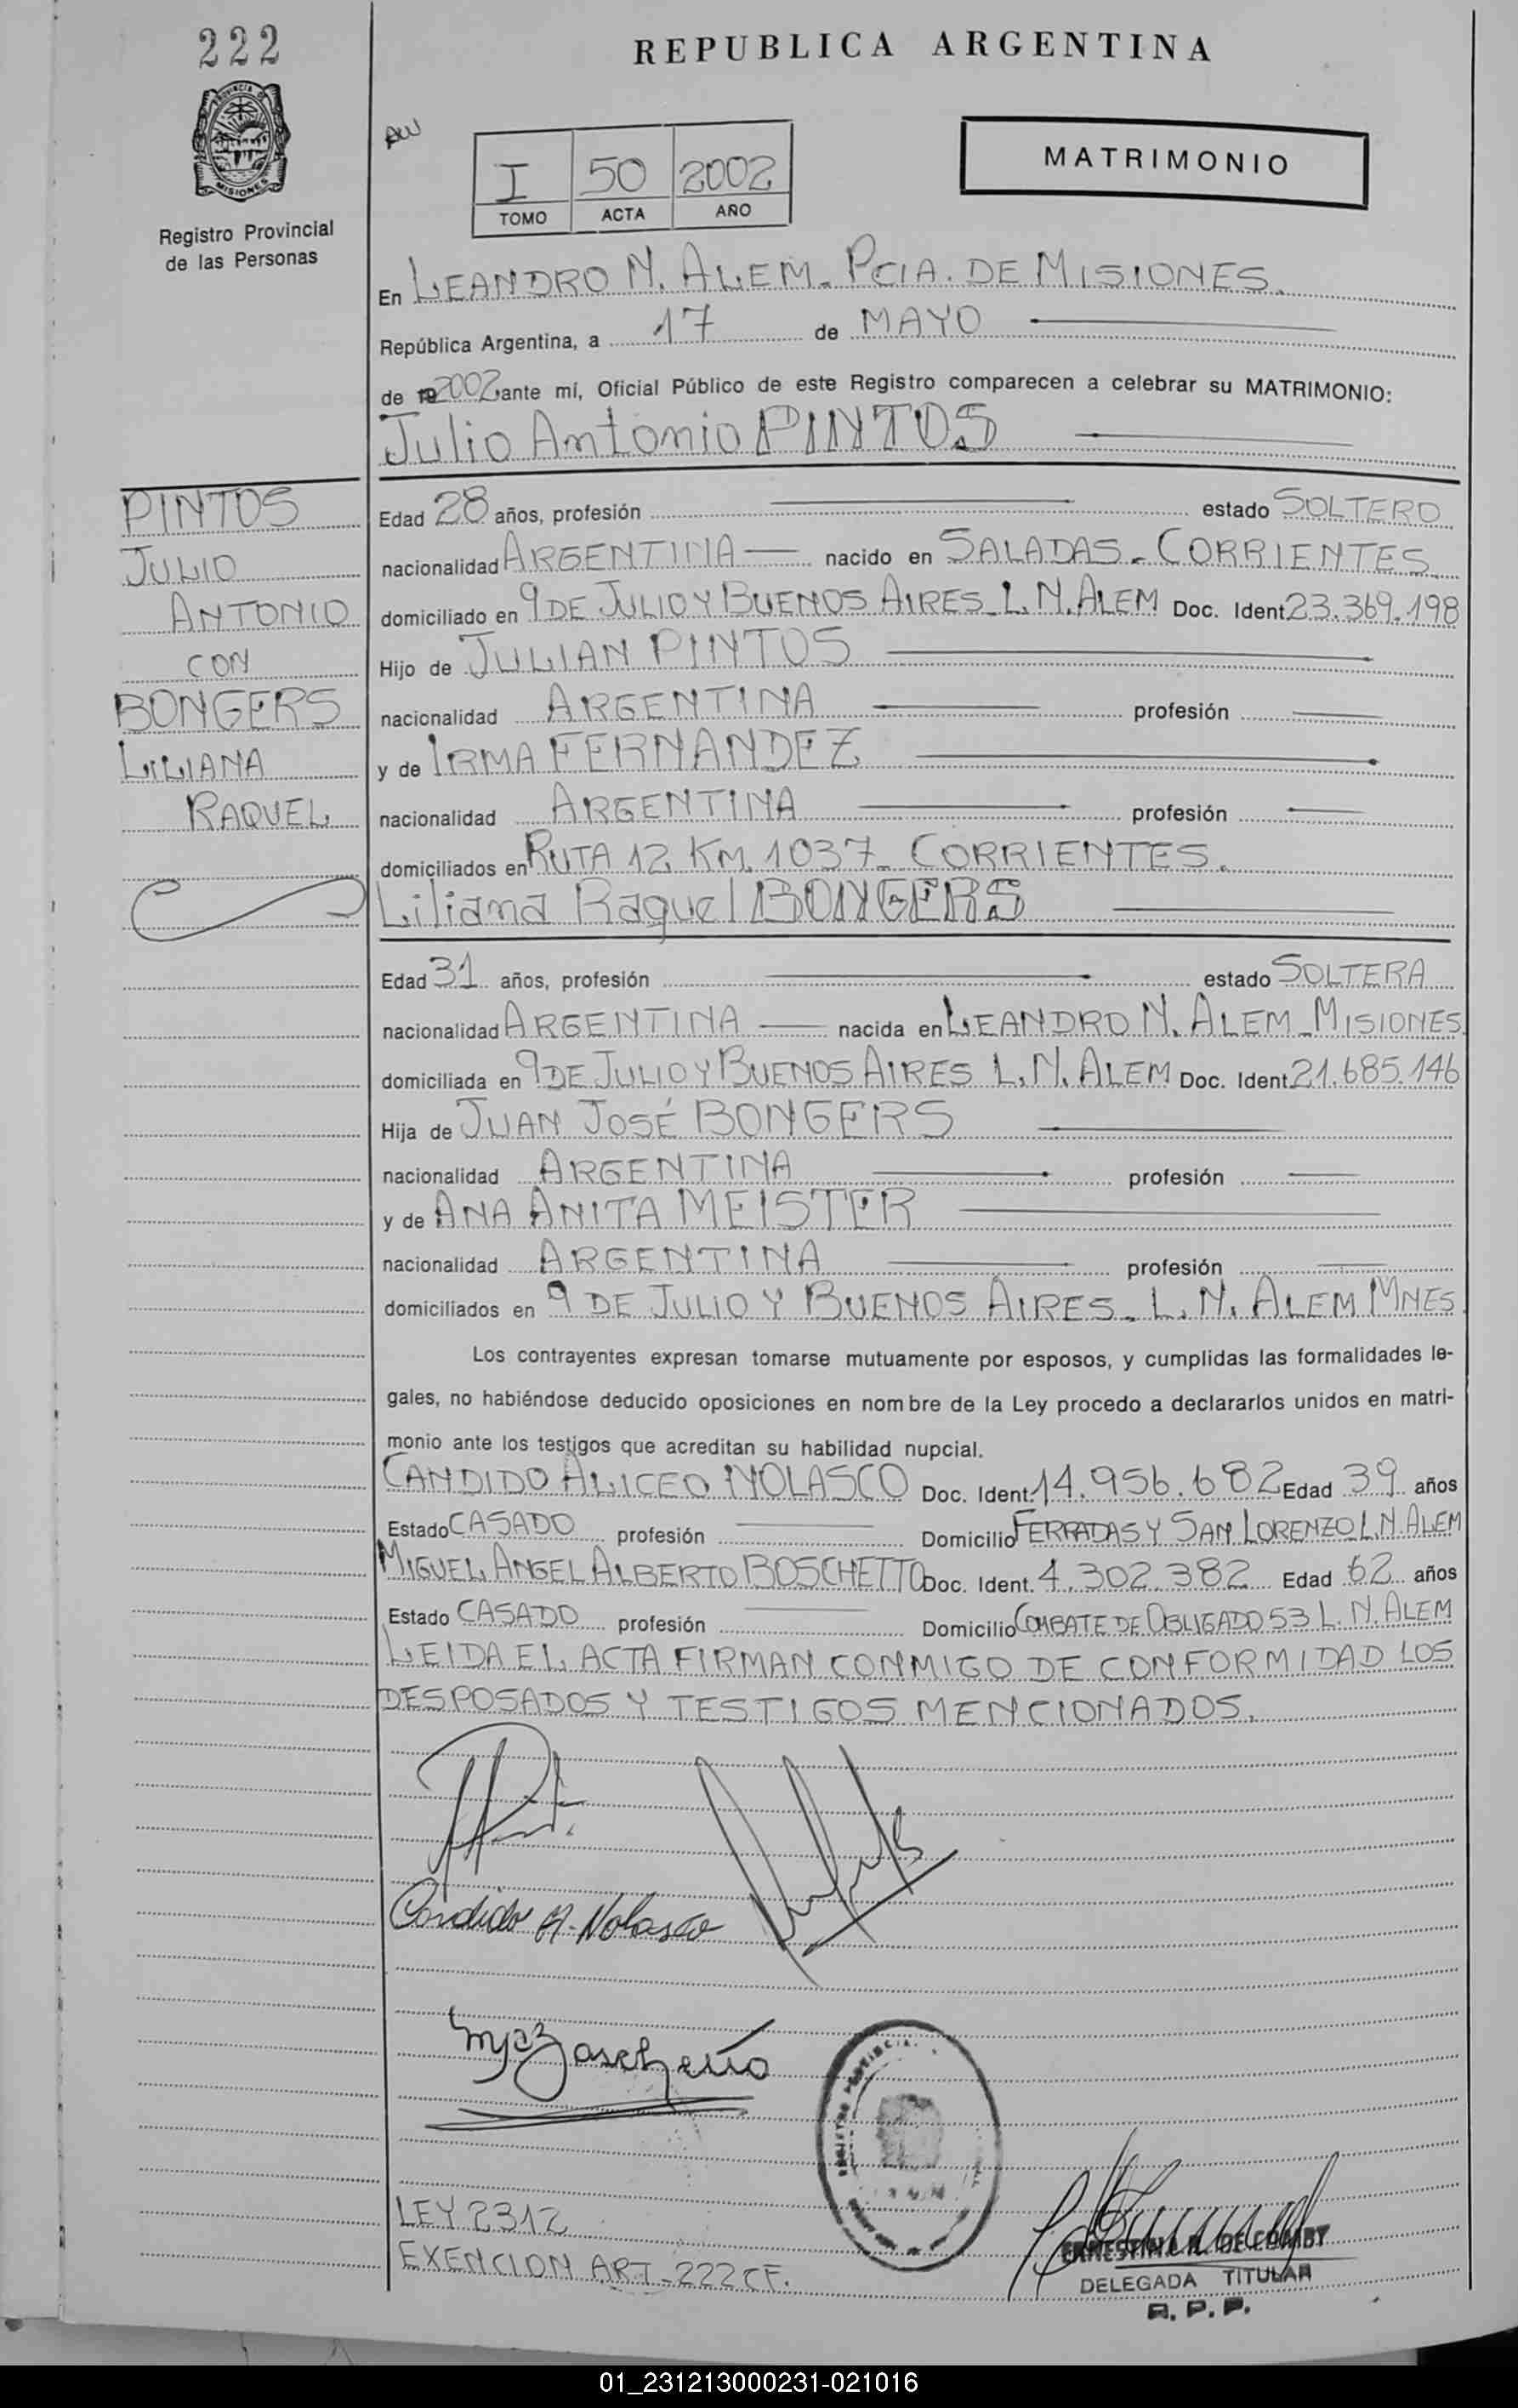 222
REPUBLICA ARGENTINA
PROVINCIA DE
MISIONES
Registro Provincial
de las Personas
I 50 2002
TOMO ACTA AÑO
MATRIMONIO
En LEANDRO N. ALEM - PCIA. DE MISIONES.
República Argentina, a 17 de MAYO
de 2002 ante mí, Oficial Público de este Registro comparecen a celebrar su MATRIMONIO:
Julio Antonio PINTOS
PINTOS
JULIO
ANTONIO
CON
BONGERS
LILIANA
RAQUEL
Edad 28 años, profesión estado SOLTERO
nacionalidad ARGENTINA nacido en SALADAS - CORRIENTES
domiciliado en 9 DE JULIO Y BUENOS AIRES - L. N. ALEM Doc. Ident. 23.369.198
Hijo de JULIAN PINTOS
nacionalidad ARGENTINA profesión
y de IRMA FERNANDEZ
nacionalidad ARGENTINA profesión
domiciliados en RUTA 12 KM. 1037 - CORRIENTES.
Liliana Raquel BONGERS
Edad 31 años, profesión estado SOLTERA
nacionalidad ARGENTINA nacida en LEANDRO N. ALEM - MISIONES
domiciliada en 9 DE JULIO Y BUENOS AIRES L. N. ALEM Doc. Ident. 21.685.146
Hija de JUAN JOSÉ BONGERS
nacionalidad ARGENTINA profesión
y de ANA ANITA MEISTER
nacionalidad ARGENTINA profesión
domiciliados en 9 DE JULIO Y BUENOS AIRES - L. N. ALEM MNES
Los contrayentes expresan tomarse mutuamente por esposos, y cumplidas las formalidades le-
gales, no habiéndose deducido oposiciones en nombre de la Ley procedo a declararlos unidos en matri-
monio ante los testigos que acreditan su habilidad nupcial.
CANDIDO ALICEO NOLASCO Doc. Ident. 14.956.682 Edad 39 años
Estado CASADO profesión Domicilio FERRADAS Y SAN LORENZO L. N. ALEM
MIGUEL ANGEL ALBERTO BOSCHETTO Doc. Ident. 4.302.382 Edad 62 años
Estado CASADO profesión Domicilio COMBATE DE OBLIGADO 53 L. N. ALEM
LEIDA EL ACTA FIRMAN CONMIGO DE CONFORMIDAD LOS
DESPOSADOS Y TESTIGOS MENCIONADOS.
Candido A. Nolasco
LEY 2312
EXENCION ART - 222 CF.
DE COMBY
DELEGADA TITULAR
R. P. P.
01_231213000231-021016